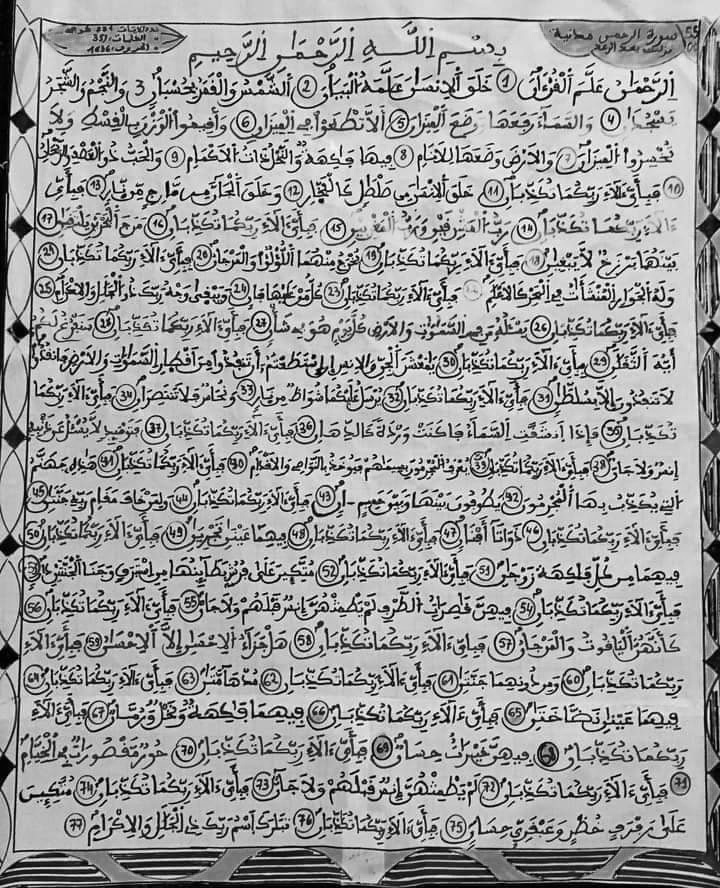 سورة الرحمن مدنية 55
نزلت بعد الرعد
الكلمات: 351
الحروف: 1636
بسم الله الرحمن الرحيم
الرحمن علم القرءان 1 خلق الانسن علمه البيان 2 الشمس والقمر بحسبان 3 والنجم والشجر
يسجدان 4 والسماء رفعها ووضع الميزان 5 ألا تطغوا في الميزان 6 وأقيموا الوزن بالقسط ولا
تخسروا الميزان 7 والارض وضعها للانام 8 فيها فكهة والنخل ذات الاكمام 9 والحب ذو العصف والريحان
10 فبأي ءالاء ربكما تكذبان 11 خلق الانسن من صلصل كالفخار 12 وخلق الجان من مارج من نار 13 فبأي
ءالاء ربكما تكذبان 14 رب المشرقين ورب المغربين 15 فبأي ءالاء ربكما تكذبان 16 مرج البحرين يلتقيان 17
بينهما برزخ لا يبغيان 18 فبأي ءالاء ربكما تكذبان 19 يخرج منهما اللؤلؤ والمرجان 20 فبأي ءالاء ربكما تكذبان 21
وله الجوار المنشئات في البحر كالاعلم فبأي ءالاء ربكما تكذبان 23 كل من عليها فان 24 ويبقى وجه ربك ذو الجلل والاكرام 25
فبأي ءالاء ربكما تكذبان 26 يسئله من في السموت والارض كل يوم هو في شأن 27 فبأي ءالاء ربكما تكذبان 28 سنفرغ لكم
أيه الثقلن 29 فبأي ءالاء ربكما تكذبان 30 يمعشر الجن والانس إن استطعتم أن تنفذوا من أقطار السموت والارض فانفذوا
لا تنفذون إلا بسلطن 31 فبأي ءالاء ربكما تكذبان 32 يرسل عليكما شواظ من نار 33 ونحاس فلا تنتصران 34 فبأي ءالاء ربكما
تكذبان 35 فإذا انشقت السماء فكانت وردة كالدهان 36 فبأي ءالاء ربكما تكذبان 37 فيومئذ لا يسئل عن ذنبه
إنس ولا جان 38 فبأي ءالاء ربكما تكذبان 39 يعرف المجرمون بسيمهم فيوخذ بالنواصي والاقدام 40 فبأي ءالاء ربكما تكذبان 41 هذه جهنم
التي يكذب بها المجرمون 42 يطوفون بينها وبين حميم -ان 43 فبأي ءالاء ربكما تكذبان 44 ولمن خاف مقام ربه جنتن 45
فبأي ءالاء ربكما تكذبان 46 ذواتا أفنان 47 فبأي ءالاء ربكما تكذبان 48 فيهما عينن تجرين 49 فبأي ءالاء ربكما تكذبان 50
فيهما من كل فكهة زوجن 51 فبأي ءالاء ربكما تكذبان 52 متكئين على فرش بطائنها من استبرق وجنا الجنتين دان 53
فبأي ءالاء ربكما تكذبان 54 فيهن قاصرات الطرف لم يطمثهن إنس قبلهم ولا جان 55 فبأي ءالاء ربكما تكذبان 56
كأنهن الياقوت والمرجان 57 فبأي ءالاء ربكما تكذبان 58 هل جزاء الاحسن إلا الاحسن 59 فبأي ءالاء
ربكما تكذبان 60 ومن دونهما جنتن 61 فبأي ءالاء ربكما تكذبان 62 مدهامتن 63 فبأي ءالاء ربكما تكذبان 64
فيهما عينن نضاختن 65 فبأي ءالاء ربكما تكذبان 66 فيهما فكهة ونخل ورمان 67 فبأي ءالاء
ربكما تكذبان 68 فيهن خيرات حسان 69 فبأي ءالاء ربكما تكذبان 70 حور مقصورات في الخيام
71 فبأي ءالاء ربكما تكذبان 72 لم يطمثهن إنس قبلهم ولا جان 73 فبأي ءالاء ربكما تكذبان 74 متكئين
على رفرف خضر وعبقري حسان 75 فبأي ءالاء ربكما تكذبان 76 تبرك اسم ربك ذي الجلل والاكرام 77